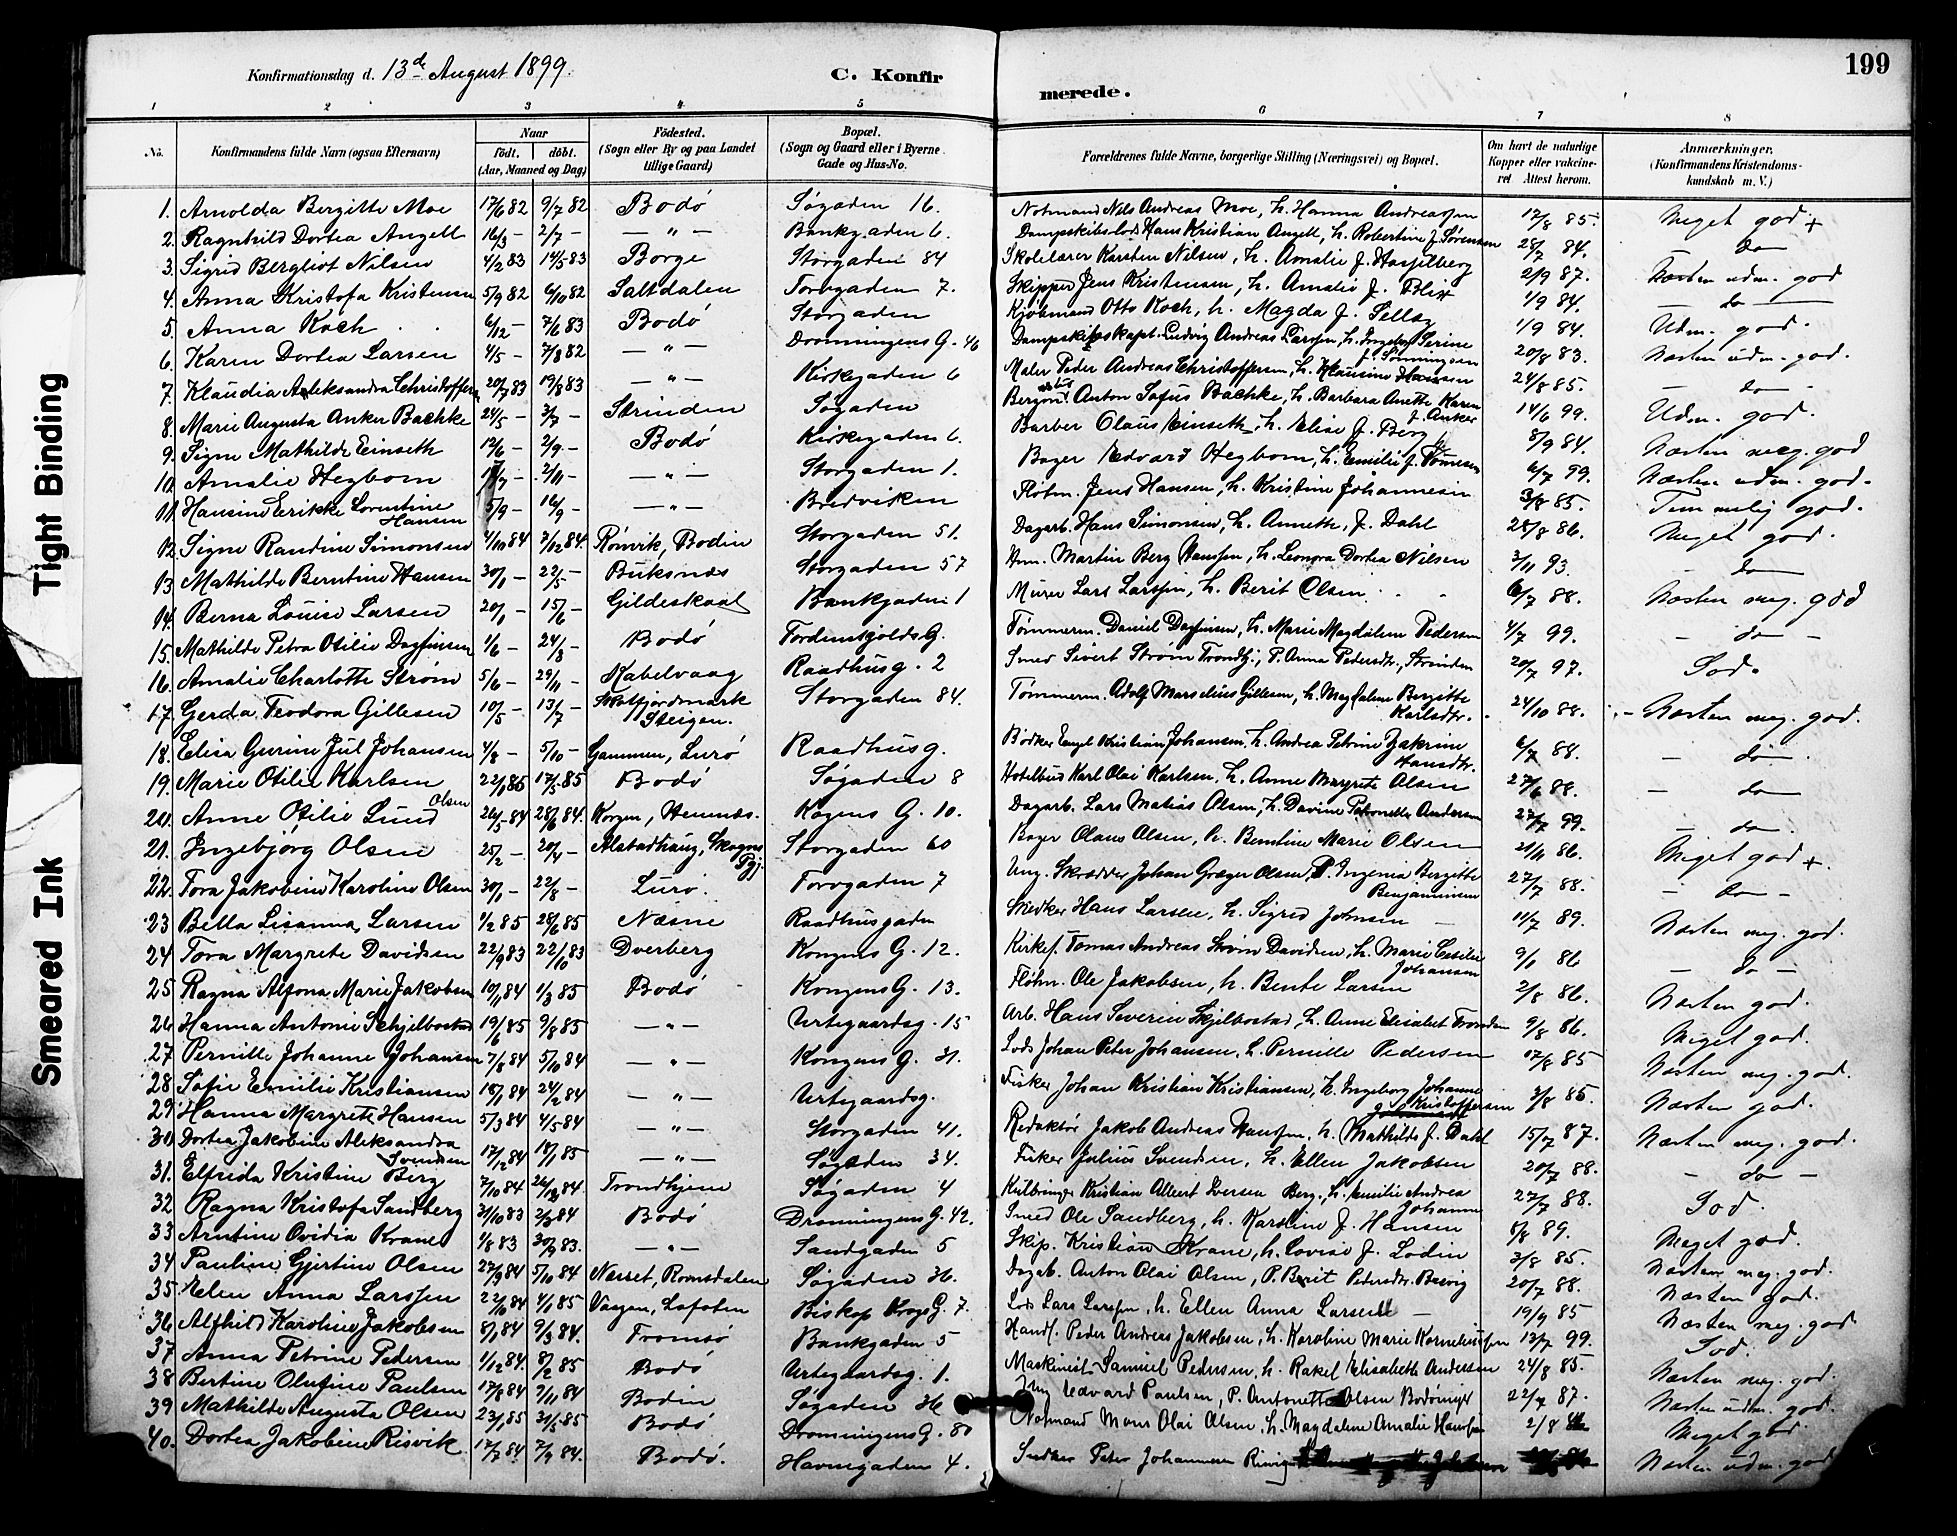 Konfirmationsdag d. 13de August 1899.
C. Konfir
merede.
199
1 2 3 4 5 6 7 8
No.
Konfirmandens fulde Navn (ogsaa Efternavn)
Naar
födt. döbt.
(Aar, Maaned og Dag)
Födested.
(Sogn eller By og paa Landet
tillige Gaard)
Bopæl.
(Sogn og Gaard eller i Byerne
Gade og Hus-No.
Forældrenes fulde Navne, borgerlige Stilling (Næringsvei) og Bopæl.
Om havt de naturlige
Kopper eller vakcine-
ret Attest herom.
Anmærkninger.
(Konfirmandens Kristendoms-
kundskab m. V.)
1. Arnolda Bergitte Moe 17/6 82 9/7 82 Bodø Søgaden 16. Notmand Nils Andreas Moe, h. Hanna Andreassen 17/8 85. Meget god +
2. Ragnhild Dortea Angell 16/3 - 2/7 - — " — Bankgaden 6. Dampskibslods Hans Kristian Angell, h. Robertine f. Sørensen 28/7 84. do
3. Sigrid Bergliot Nilsen 4/2 83 14/5 83 Borge Storgaden 84 Skolelærer Karsten Nilsen, h. Amalie f. Hasselberg 2/9 87. Næsten udm. god
4. Anna Kristofa Kristensen 5/9 82 6/10 82 Saltdalen Torvgaden 7. Skipper Jens Kristensen, h. Amalie f. Blix 1/9 84. — do —
5. Anna Koch 6/12 - 7/6 83 Bodø Storgaden Kjøbmand Otto Koch, h. Magda f. Jelsø 1/9 84. Udm. god.
6. Karen Dortea Larsen 4/5 - 7/8 82 — " — Dronningens G. 46 Dampskibskapt. Ludvig Andreas Larsen, h. Ingebor Serine f. Sønningsen 20/8 83. Næsten udm. god.
7. Klaudia Aleksandra Christoffersen 20/7 83 19/8 83 — " — Kirkegaden 6 Maler Peder Andreas Christoffersen, h. Klausine Hansen 24/8 85. — do —
8. Marie Augusta Anker Bachke 24/5 - 3/7 - Strinden Søgaden Anton Sofus Bachke, h. Barbara Anette Karen f. Anker 14/6 99. Udm. god.
9. Signe Mathilde Einseth 12/6 - 2/9 - Bodø Kirkegaden 6. Barber Olaus Einseth, h. Elise f. Berg 8/9 84. Næsten meg. god
10. Amalie Hegbom - 2/11 - — " — Storgaden 1. Bager Edvard Hegbom, h. Emilie f. 6/7 99. Næsten udm. god.
11. Hansine Erikke Lorentine Hansen 5/9 - 16/9 - — " — Bredviken Jens Hansen, h. Kristine Johannesen 3/8 85. Temmelig god.
12. Signe Randine Simonsen 4/10 84 7/12 84. Rønvik, Bodin Storgaden 51. Dagarb. Hans Simonsen, h. Anneth. f. Dahl 28/8 86. Meget god.
13 Mathilde Berntine Hansen 30/1 - 22/5 - Buksnes Storgaden 57 Hm. Martin Berg Hanssen, h. Leonora Dortea Nilsen 3/11 93. — do —
14 Berna Louise Larsen 20/1 - 15/6 - Gildeskaal Bankgaden 1 Murer Lars Larssen, h. Berit Olsen 6/7 88. Næsten meg. god
15. Mathilde Petra Otilie Dagfinsen 1/6 - 24/8 - Bodø Tordenskjolds G. Tømmerm. Daniel Dagfinsen, h. Marie Magdalene Pedersen 4/7 99. — do —
16. Amalie Charlotte Strøm 5/6 - 29/11 - Kabelvaag Raadhusg. 2 Smed Sivert Strøm Trondhj., P. Anna Pedersdtr., Strinden 20/7 97. God.
17. Gerda Teodora Gillesen 10/5 - 13/7 - Steigen. Storgaden 84. Tømmerm. Adolf Marselius Gillesen, h. Magdalene Bergitte Karlsdtr. 24/10 88. Næsten meg. god.
18. Elisa Gurine Jul Johansen 4/8 - 5/10 - Lurø Raadhusg. Bødker Engel Kristian Johansen, h. Andrea Petrine Zakrine Hansdtr. 6/7 88. — do —
19. Marie Otilie Karlsen 22/1 85 17/5 85 Bodø Søgaden 8 Hotelbud Karl Olai Karlsen, h. Anne Margrete Olsen 27/6 88. — do
20. Anne Otilie Lund Olsen 26/5 84 28/6 84. Korgen, Hemnes. Kogens G. 10. Dagarb. Lars Matias Olsen, h. Davine Petronelle Andersen 27/7 99. — do —
21. Ingebjørg Olsen 25/2 - 20/4 - Alstadhaug, Skogns Pgj. Storgaden 60 Bager Olaus Olsen, h. Berntine Marie Olsen 21/11 86. Meget god +
22. Tora Jakobine Karoline Olsen 30/1 - 22/8 - Lurø. Torvgaden 7 Ung. Skrædder Johan Græger Olsen, P. Ingenia Bergitte Benjaminsen 27/7 88. — do —
23 Bella Lisanna Larsen 1/2 85 28/6 85 Næsne Raadhusgaden Hans Larsen, h. Sigrid Johnsen 11/7 89. Næsten meg. god.
24 Tora Margrete Davidsen 22/9 83 22/10 83 Dverberg Kongens G. 12. Kirkes. Tomas Andreas Davidsen, h. Marie Cesilie Johansen 9/1 86 — do —
25 Ragna Alfona Marie Jakobsen 10/1 84 1/3 85 Bodø Kongens G. 13. Ole Jakobsen, h. Bente Larsen 2/8 86. Næsten god.
26 Hanna Antonie Schjelbostad 19/6 85 9/8 85 — " — Urtegaardsg. 15 Arb. Hans Severin Skjelbostad, h. Anne Elisabet 9/8 86. Meget god.
27 Pernille Johanne Johansen 7/8 84 5/10 84 — " — Kongens G. 31. Lods Johan Peter Johansen, h. Pernille Pedersen 17/8 85 Næsten meg. god.
28 Sofie Emilie Kristiansen 18/1 84 24/2 84 — " — Urtegaardsg. Fisker Johan Kristian Kristiansen, h. Ingeborg Johanne Kristoffersen 3/8 85. Næsten god.
29. Hanna Margrete Hansen 5/3 84 4/5 84 — " — Storgaden 41. Redaktør Jakob Andreas Hanssen, h. Mathilde f. Dahl 15/7 87. Næsten meg. god.
30 Dortea Jakobine Aleksandra Svendsen 17/12 84 18/1 85 — " — Søgaden 34. Fisker Julius Svendsen, h. Ellen Jakobsen 20/7 88. — do —
31. Elfrida Kristine Berg 7/10 84 84. Trondhjem Søgaden 4 Kristian Albert Iversen Berg, h. Emilie Andrea Johanne 27/7 88. God.
32 Ragna Kristofa Sandberg 31/10 83 2/3 84 Bodø Dronningens G. 42. Smed Ole Sandberg, h. Karoline f. Hansen 8/8 89. Meget god.
33 Arntine Ovidia Krane 1/8 83 30/9 83. — " — Sandgaden 5 Skip. Kristian Krane, h. Lovise f. Lodin 3/8 85. Næsten meg. god.
34 Pauline Gjertine Olsen 27/9 84 5/10 84 Nesset, Romsdalen Søgaden 36. Dagab. Anton Olai Olsen, P. Berit Pedersdtr. 20/7 88. Næsten god.
35 Elen Anna Larssen 22/6 84 4/1 85 Vaagen, Lofoten Biskop Krogs G. 7. Lods Lars Larssen, h. Ellen Anna Larsen 19/9 85 Næsten meg. god
36 Alfhild Karoline Jakobsen 8/1 84 9/3 84. Tromsø Bankgaden 5 Handl. Peder Andreas Jakobsen, h. Karoline Marie Korneliussen 13/7 99. God.
37 Anna Petrine Pedersen 1/12 84. 8/2 85 Bodø Urtegaardsg. 1. Maskinist Samuel Pedersen, h. Rakel Elisabeth Andersen 24/8 85. Næsten meg. god.
38 Bertine Olufine Paulsen 17/8 84 2/11 84 Bodin Søgaden 36 Ung Edvard Paulsen, P. Antonette Olsen 22/7 87. Næsten udm. god.
39 Mathilde Augusta Olsen 23/1 85 31/5 85 Bodø Dronningens G. 80 Notmand Mons Olai Olsen, h. Magdalene Amalie Hanssen 2/8 Meget god.
40. Dortea Jakobine Risvik 17/7 84 7/9 84. Bodø. Havnegaden 4. Peter Johannesen Risvig Næsten udm. god
Tight Binding
Smeared Ink